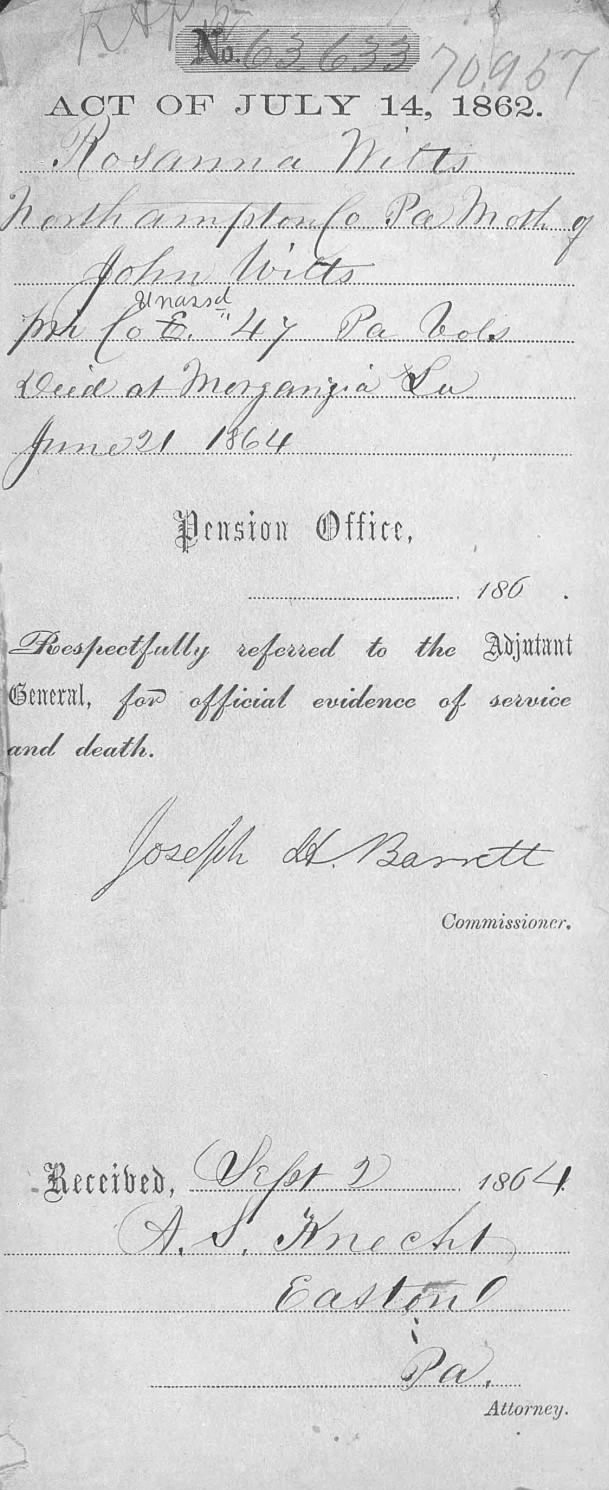 No. 63633
70,957
ACT OF JULY 14, 1862.
Rosanna Witts
Northampton Co Pa Moth of
John Witts
Unassd
Co E. " 47 Pa Vols
Died at Morganzia La
June 21 1864
Pension Office,
186 .
Respectfully referred to the Adjutant
General, for official evidence of service
and death.
Joseph H. Barrett
Commissioner.
Received, Sept 2 1864.
A. S. Knecht
Easton
Pa.
Attorney.